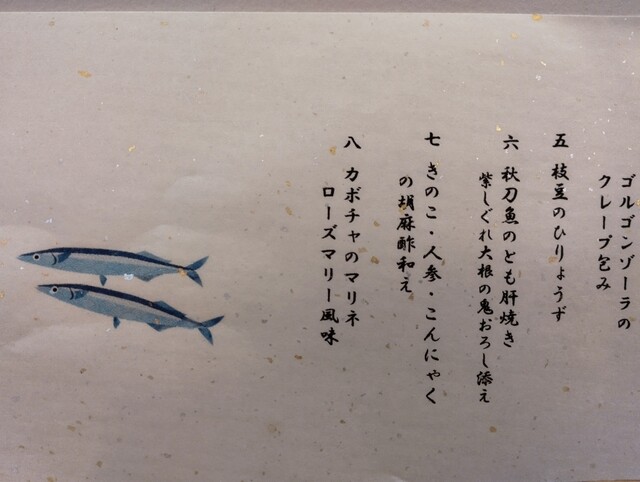 ゴルゴンゾーラの
クレープ包み
五 枝豆のひりょうず
六 秋刀魚のとも肝焼き
紫しぐれ大根の鬼おろし添え
七 きのこ・人参・こんにゃく
の胡麻酢和え
八 カボチャのマリネ
ローズマリー風味